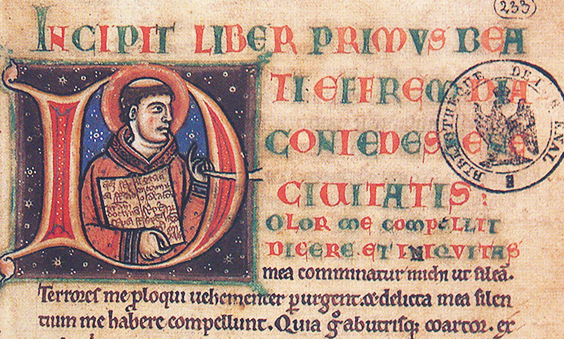 (233)
INCIPIT LIBER PRIMVS BEA
TI EFFREM DIA
CONI
CIUITATIS:
D OLOR ME COMPELLIT
DICERE. ET INIQUITAS
mea comminatur michi ut sileā.
Terrores me ꝓloqui uehementer ꝑurgent. & delicta mea silen
tium me habere compellunt. Quia g̊ abutrisq; coartor. ex
BIBLIOTHEQUE DE